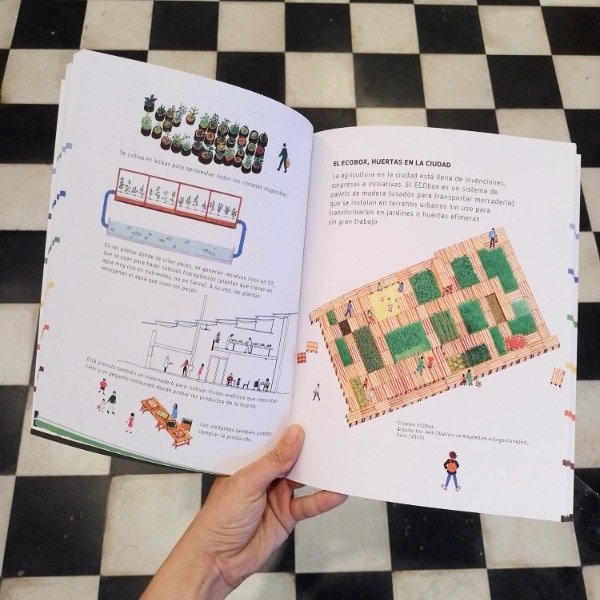 Se cultiva en bolsas para aprovechar todos los rincones disponibles.
En las piletas donde se crían peces, se generan residuos ricos en
que se usan para hacer cultivos hidropónicos (plantas que crecen en
agua muy rica en nutrientes, no en tierra). A su vez, las plantas
oxigenan el agua que usan los peces.
Está previsto también un invernadero para cultivar frutos exóticos que necesitan
calor y un pequeño restaurant donde probar los productos de la huerta.
Los visitantes también pueden
comprar lo producido.
EL ECOBOX, HUERTAS EN LA CIUDAD
La agricultura en la ciudad está llena de invenciones,
sorpresas e iniciativas. El ECObox es un sistema de
pallets de madera (usados para transportar mercadería)
que se instalan en terrenos urbanos sin uso para
transformarlos en jardines o huertas efímeras
sin gran trabajo.
El jardín ECObox
Arquitectos: AAA (Ateliers de Arquitectura Autogestionados),
París (2005).